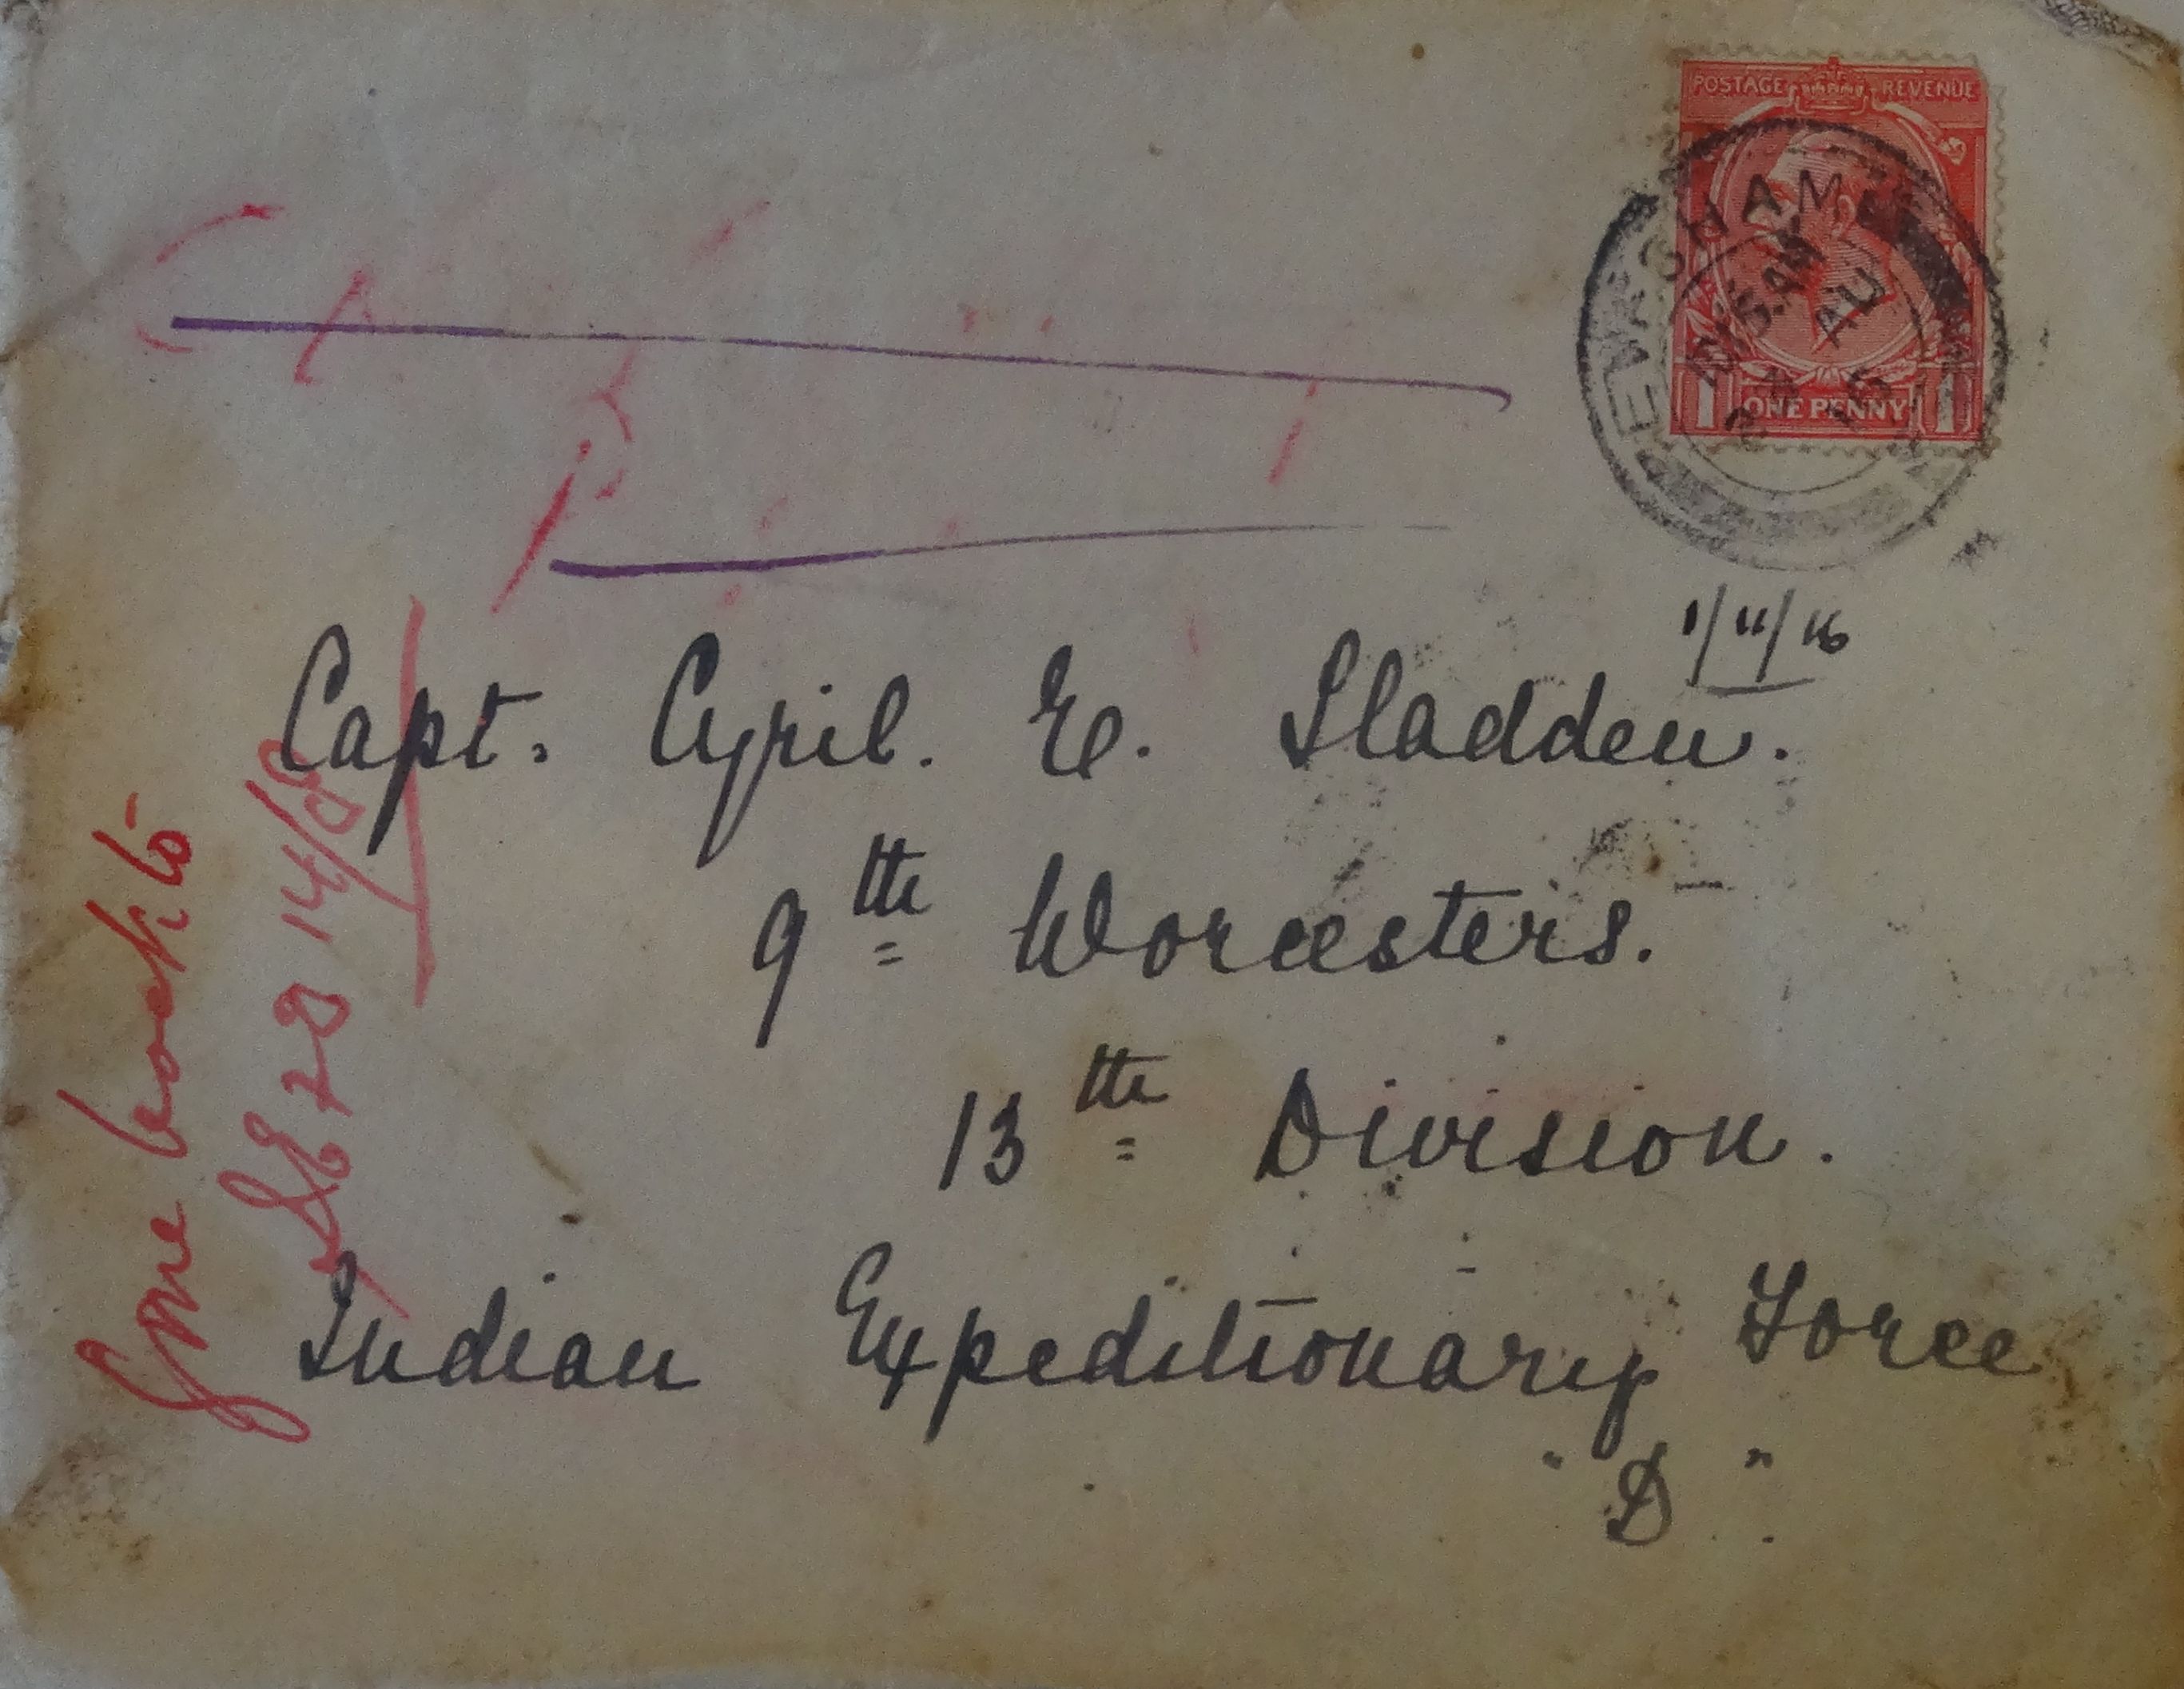 POSTAGE REVENUE
EVESHAM
10.15 AM
1 ONE PENNY 1
1/11/16
Capt. Cyril. E. Sladden.
9th Worcesters.
13th Division.
Indian Expeditionary Force
"D".
Gone back to
14/8